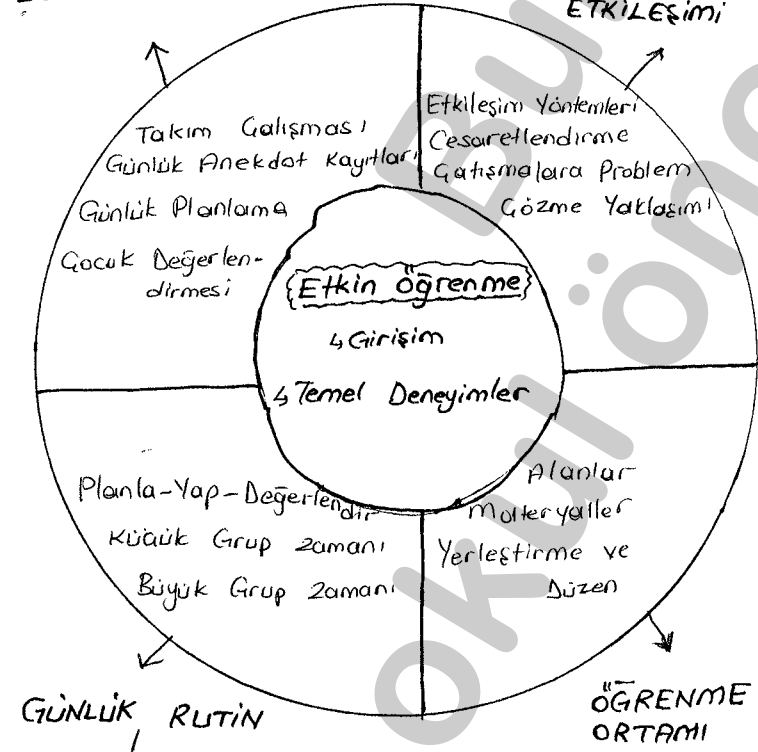 ETKİLEŞİMİ
Takım Çalışması
Günlük Anekdot Kayıtları
Günlük Planlama
Çocuk Değerlen-
dirmesi
Etkileşim Yöntemleri
Cesaretlendirme
Çatışmalara Problem
Çözme Yaklaşımı
Etkin Öğrenme
↳ Girişim
↳ Temel Deneyimler
Planla-Yap-Değerlendir
Küçük Grup Zamanı
Büyük Grup Zamanı
Alanlar
Materyaller
Yerleştirme ve
Düzen
GÜNLÜK RUTİN
ÖĞRENME
ORTAMI
okul ön
Bu